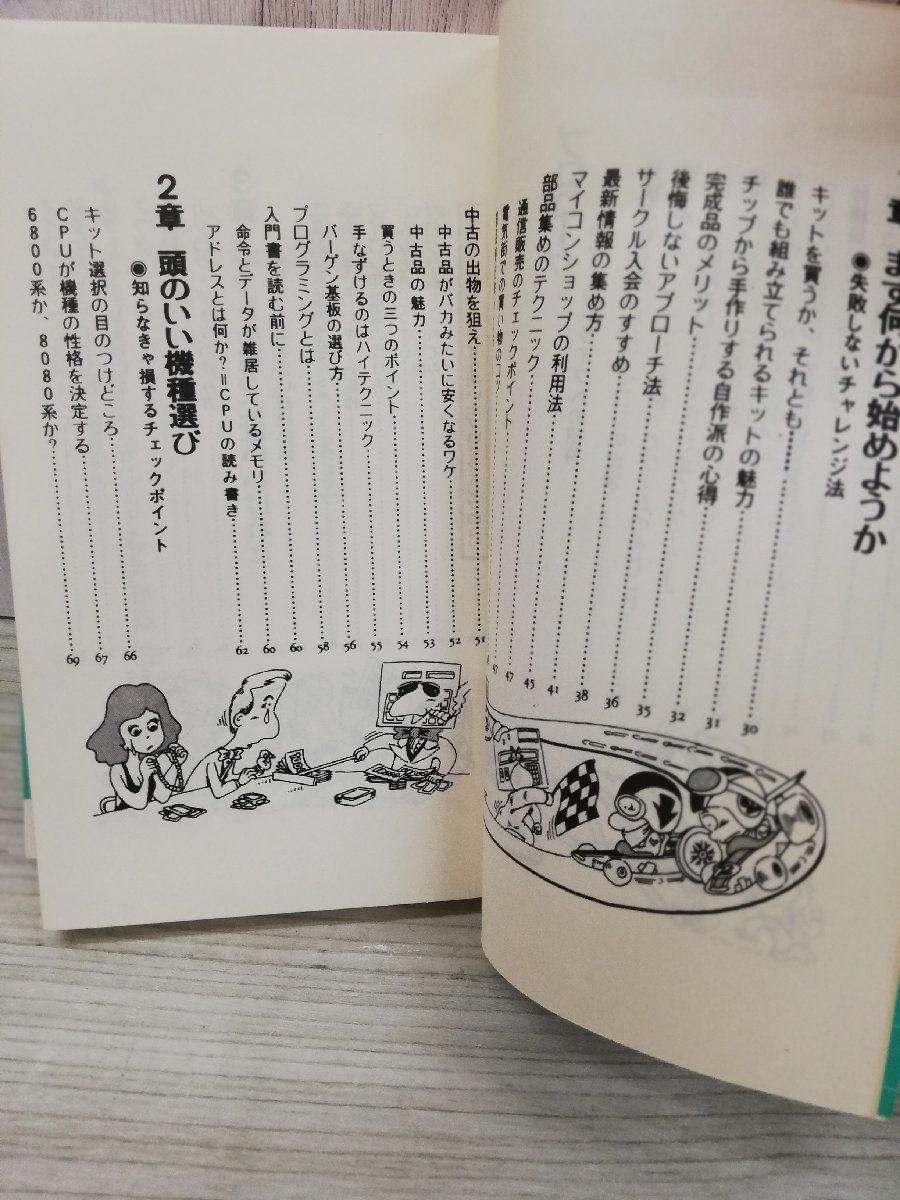 章 まず何から始めようか
●失敗しないチャレンジ法
キットを買うか、それとも……………30
誰でも組み立てられるキットの魅力……………31
チップから手作りする自作派の心得……………32
完成品のメリット……………35
後悔しないアプローチ法……………36
サークル入会のすすめ……………38
最新情報の集め方……………41
マイコンショップの利用法……………45
部品集めのテクニック……………47
通信販売のチェックポイント……………47
電気街での買い物のコツ……………
中古の出物を狙え……………51
中古品がバカみたいに安くなるワケ……………52
中古品の魅力……………53
買うときの三つのポイント……………54
手なずけるのはハイテクニック……………55
バーゲン基板の選び方……………56
プログラミングとは……………58
入門書を読む前に……………60
命令とデータが雑居しているメモリ……………60
アドレスとは何か?=CPUの読み書き……………62
2章 頭のいい機種選び
●知らなきゃ損するチェックポイント
キット選択の目のつけどころ……………66
CPUが機種の性格を決定する……………67
6800系か、8080系か?……………69